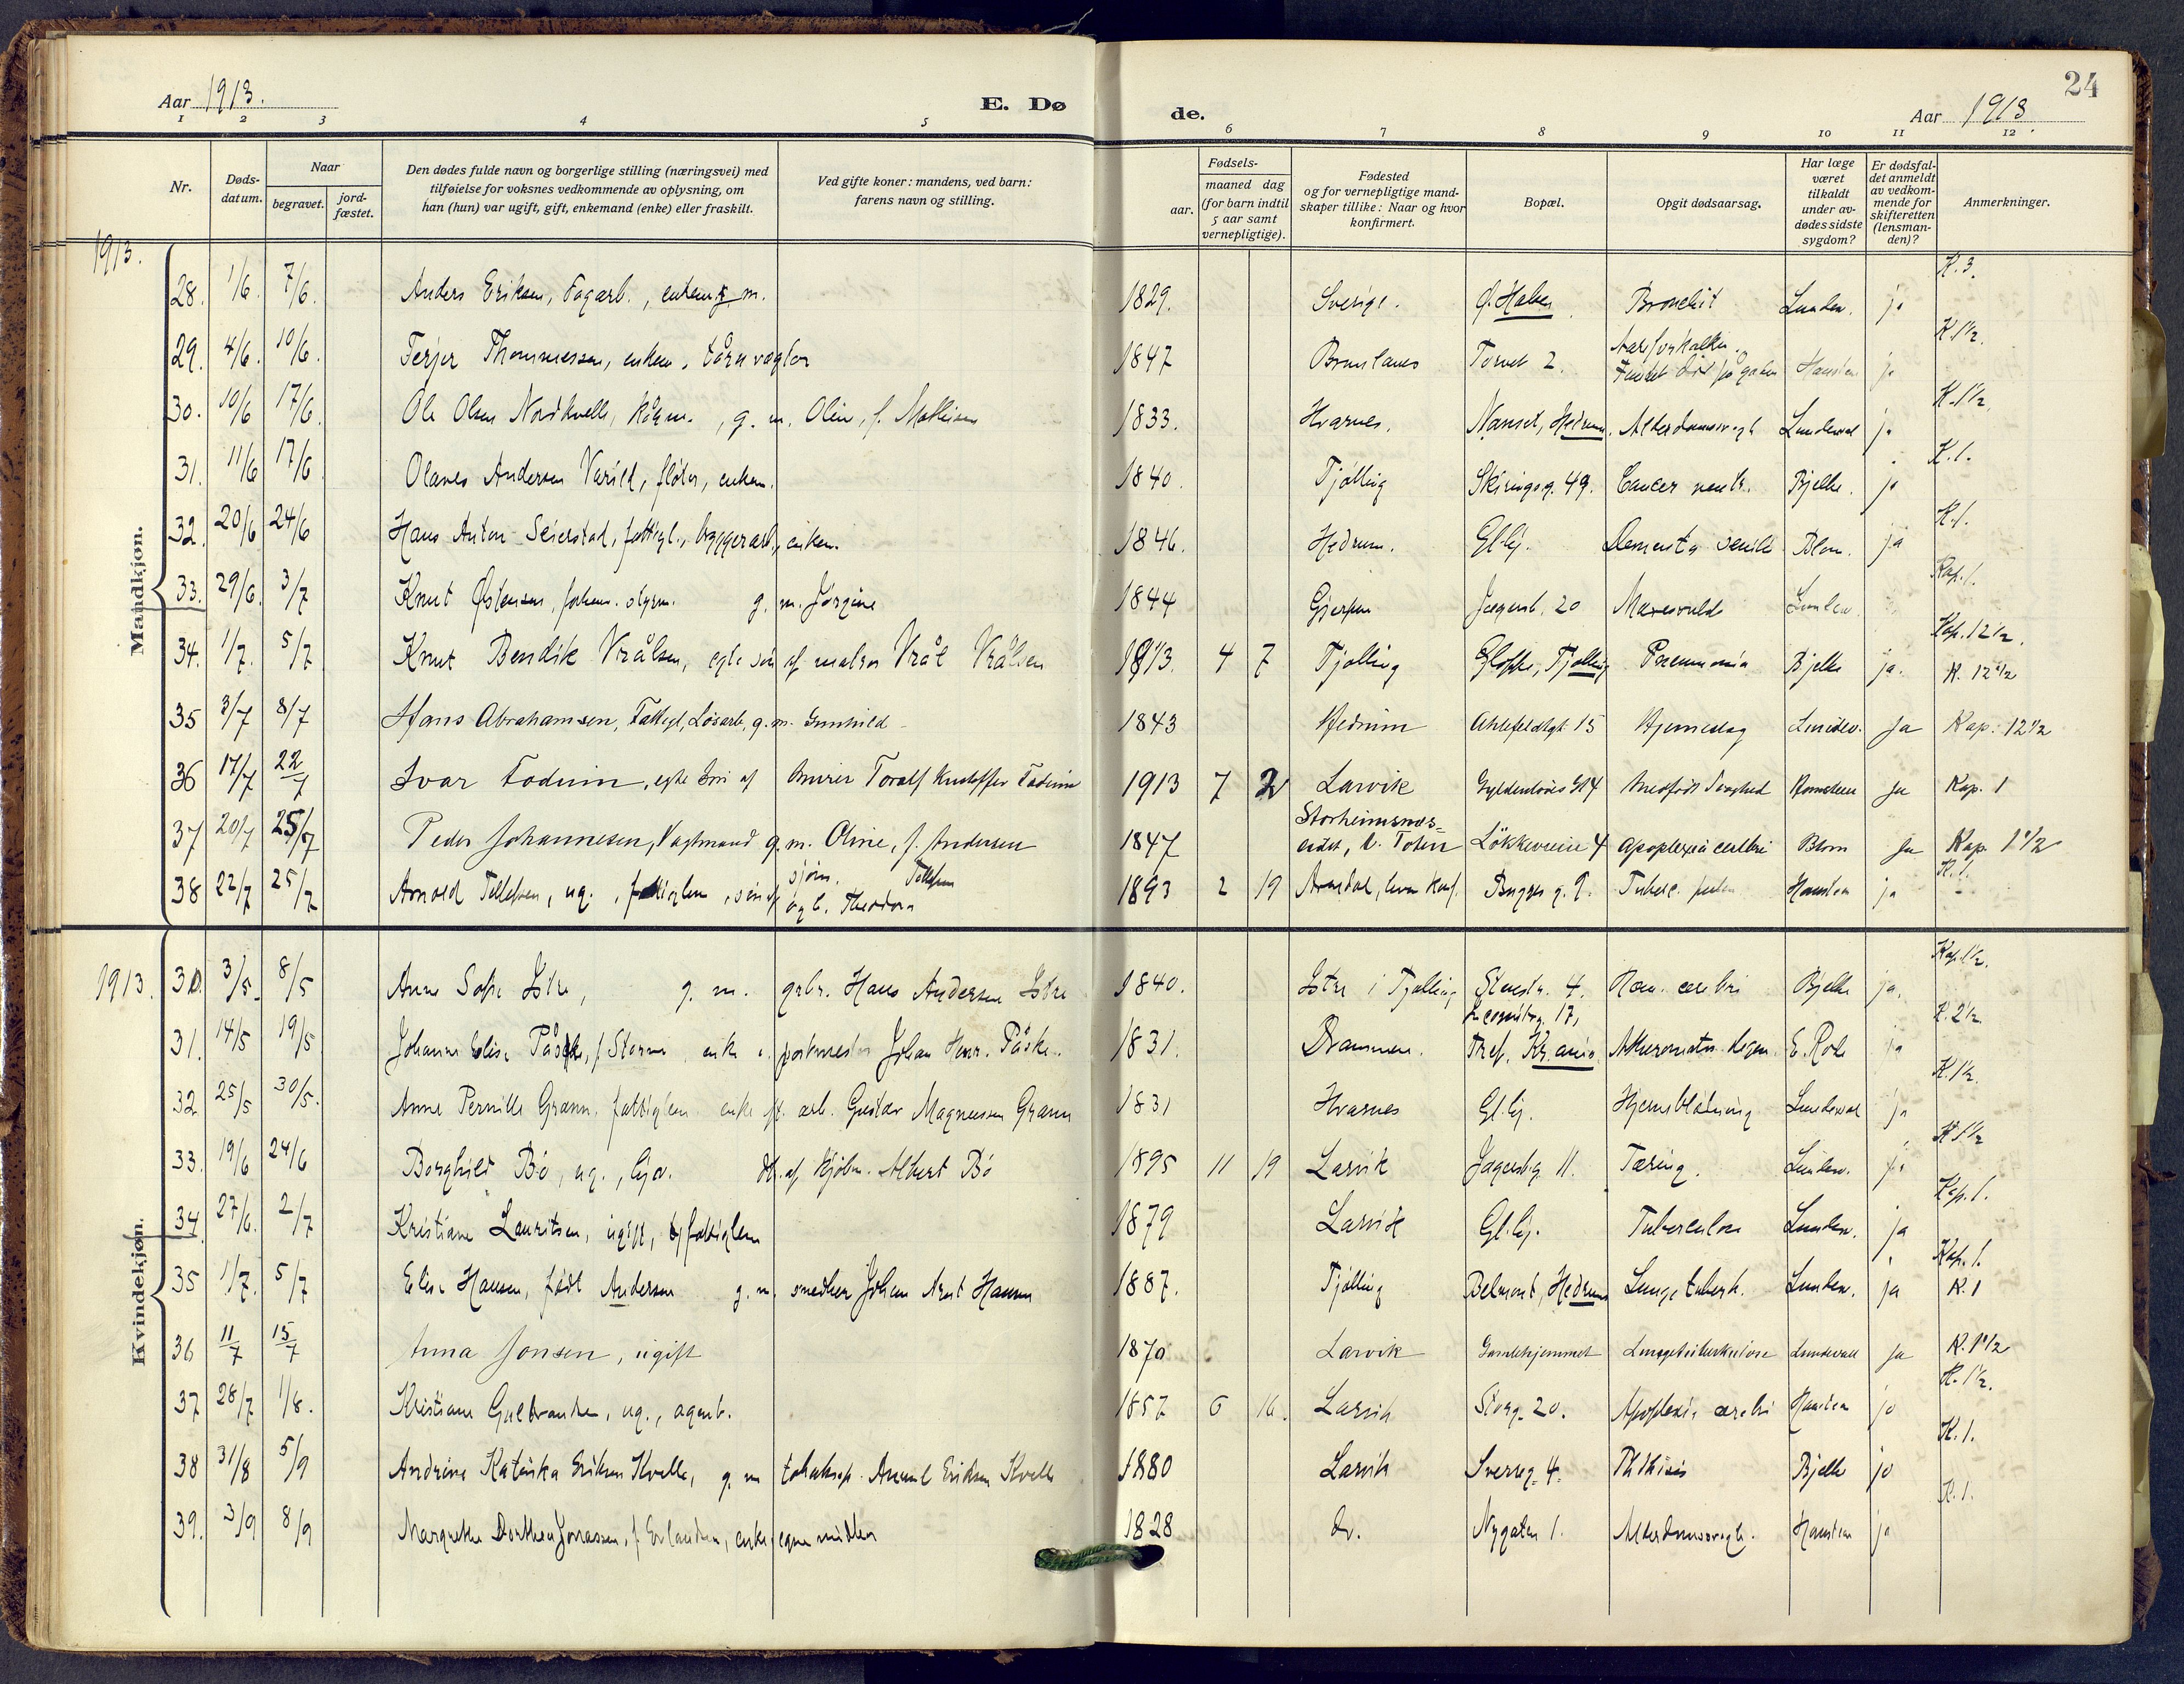 24
Aar 1913. E. Dø de. Aar 1913.
1 2 3 4 5 6 7 8 9 10 11 12
Nr. Døds-datum. Naar begravet. jord-fæstet. Den dødes fulde navn og borgerlige stilling (næringsvei) med tilføielse for voksnes vedkommende av oplysning, om han (hun) var ugift, gift, enkemand (enke) eller fraskilt. Ved gifte koner: mandens, ved barn: farens navn og stilling. Fødsels- aar. maaned dag (for barn indtil 5 aar samt vernepligtige). Fødested og for vernepligtige mandskaper tillike: Naar og hvor konfirmert. Bopæl. Opgit dødsaarsag. Har læge været tilkaldt under avdødes sidste sygdom? Er dødsfaldet anmeldt av vedkommende for skifteretten (lensmanden)? Anmerkninger.
1913.
Mandkjøn.
28. 1/6. 7/6. Anders Eriksen, Fagarb., enkem. 1829. Sverige. Ø. Halsen Bronchit Lundew. ja K. 3.
29. 4/6. 10/6. Terjer Thommessen, enkem., tårnvægter 1847 Brunlanes Torvet 2. Aareforkalkn. Fundet død på gaten Hansten ja K 1½.
30. 10/6 17/6. Ole Olsen Nordkvelle, g. m. Oline, f. Mathisen 1833. Hvarnes. Nanset, Hedrum. Alderdomssvagh Lundewal ja K. 1½.
31. 11/6 17/6 Olaves Andersen Varild, fløter, enkem. 1840. Tjølling Skiringsg. 49. Cancer ventr. Bjelke. ja K. 1.
32. 20/6 24/6 Hans Anton Seierstad, fattigl., bryggerarb., enkem. 1846. Hedrum. Gl.hj. Dementia senilis Blom. ja K. 1.
33. 29/6. 3/7 Knut Østensen, forhenv. styrm. g. m. Jørgine 1844 Gjerpen Jegersb. 20 Mavesvulst Lundew. Kap. 1.
34. 1/7. 5/7 Knut Bendik Vrålsen, egte søn af matros Vrål Vrålsen 1913. 4 7 Tjølling Gloppe, Tjølling Pneumonia Bjelke ja. Kap. 12½. K. 12½
35 3/7 8/7 Hans Abrahamsen, Fattigl., Løsarb., g. m. Gunhild 1843 Hedrum Ahlefeldtsgt. 15 Hjerneslag Lundew. Ja Kap. 12½
36 17/7 22/7 Ivar Fodum, egte søn af Murer Toralf Kristoffer Fodum 1913 7 2 Larvik Gyldenløves Gt 4 Medfødt Svaghed Ja Kap. 1
37 20/7 25/7 Peder Johannesen, Vagtmand g. m. Oline, f. Andersen 1847 Storheimsnæs-eidet, V. Toten Løkkeveien 4 Apoplexia cerebri Blom Ja Kap. 1½
38 22/7 25/7 Arnold Tellefsen, ug., fattiglem, søn af sjøm. Tellefsen og h. Theodora 1893 2 19 Arendal, Bugges g. 9. Tuberc. pulm. Hansten ja K. 1.
1913.
Kvindekjøn.
30. 3/5. 8/5 Anne Sofie Istre, g. m. grbr. Hans Andersen Istre 1840. Istre i Tjølling Stenstr. 4. Hæm. cerebri Bjelke ja. Kap. 1½.
31. 14/5 19/5 Johanne Elise Påske, f. Storm, enke e. postmester Johan Henr. Påske. 1831. Drammen. 17, Tref. Kr.ania. E. Roll ja K. 2½.
32. 25/5 30/5. Anne Pernille Grann, fattiglem. enke eft. arb. Gustav Magnussen Grann 1831 Hvarnes Gl.hj. Hjerneblødning Lundewal ja K. 1½.
33. 19/6 24/6 Borghild Bø, ug., hja. dt. af kjøbm. Albert Bø 1895 11 19 Larvik Jegersbg. 11. Tæring. Lundew. ja K 1½
34. 27/6. 2/7 Kristiane Lauritsen, ugift, fattiglem 1879 Larvik Gl.hj. Tuberculose Lundew. ja Kap. 1.
35 1/7. 5/7 Elise Hansen, født Andersen g. m. smedlær. Johan Arnt Hansen 1887. Tjølling Belmont, Hedrum Lunge tuberk. Lundew. ja Kap. 1. K. 1
36 11/7 15/7 Anna Jonsen, ugift 1870 Larvik Gamlehjemmet Lungetuberkulose Lundewall Ja K. 1½
37 28/7 1/8. Kristiane Gulbransen, ug., agent. 1857 6 16. Larvik Storg. 20. Apoplexia cerebri Hansten ja K. 1½.
38 31/8 5/9 Andrine Katinka Eriksen Kvelle, g. m. tobaksp. Anund Eriksen Kvelle 1880 Larvik Sverreg. 4. Phthisis Bjelke ja K. 1.
39. 3/9 8/9 Margrethe Dorthea Jonassen, f. Erlandsen, enke, egne midler 1828 do. Nygaten 1. Alderdomssvagh. Hansten ja K. 1.